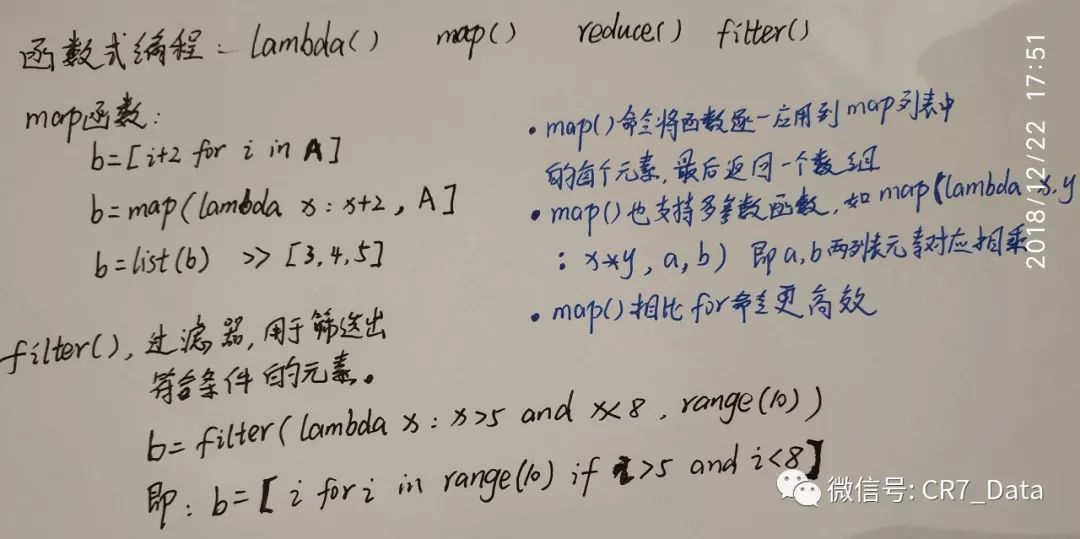 函数式编程: lambda() map() reduce() filter()
map函数:
b=[i+2 for i in A]
b=map(lambda x: x+2, A]
b=list(b) >> [3,4,5]
• map()命令将函数逐一应用到map列表中
的每个元素,最后返回一个数组
• map()也支持多参数函数,如map(lambda x,y
: x*y, a,b) 即a,b两列表元素对应相乘
• map()相比for命令更高效
filter(),过滤器,用于筛选出
符合条件的元素。
b=filter(lambda x: x>5 and x<8, range(10))
即: b=[i for i in range(10) if i>5 and i<8]
2018/12/22 17:51
微信号: CR7_Data